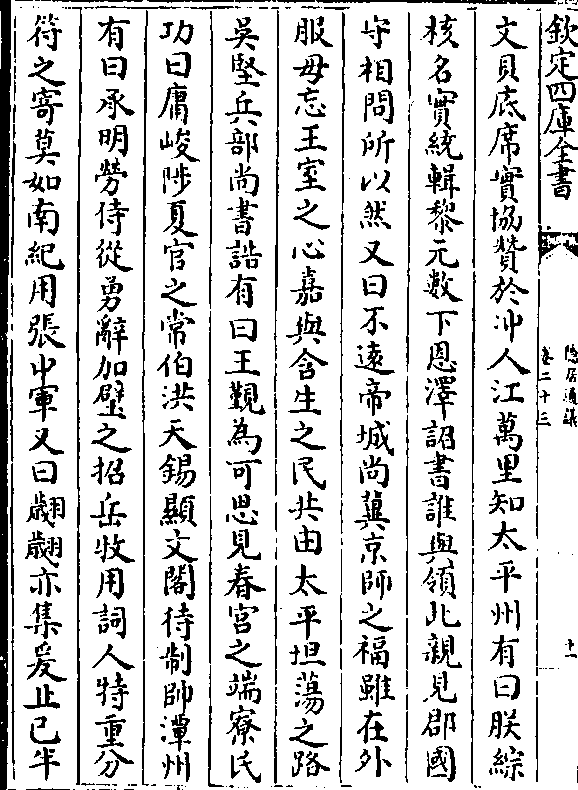 欽定四庫全書
隱居通議
卷二十三
十一
文貝底席實協贊於沖人江萬里知太平州有曰朕綜
核名實統輯黎元數下恩澤詔書誰與領此親見郡國
守相問所以然又曰不遠帝城尚冀京師之福雖在外
服毋忘王室之心嘉與含生之民共由太平坦蕩之路
吳堅兵部尚書誥有曰王覲為可思見春宮之端寮民
功曰庸峻陟夏官之常伯洪天錫顯文閣待制帥潭州
有曰承明勞侍從勇辭加璧之招岳牧用詞人特重分
符之寄莫如南紀用張中軍又曰翽翽亦集爰止已半